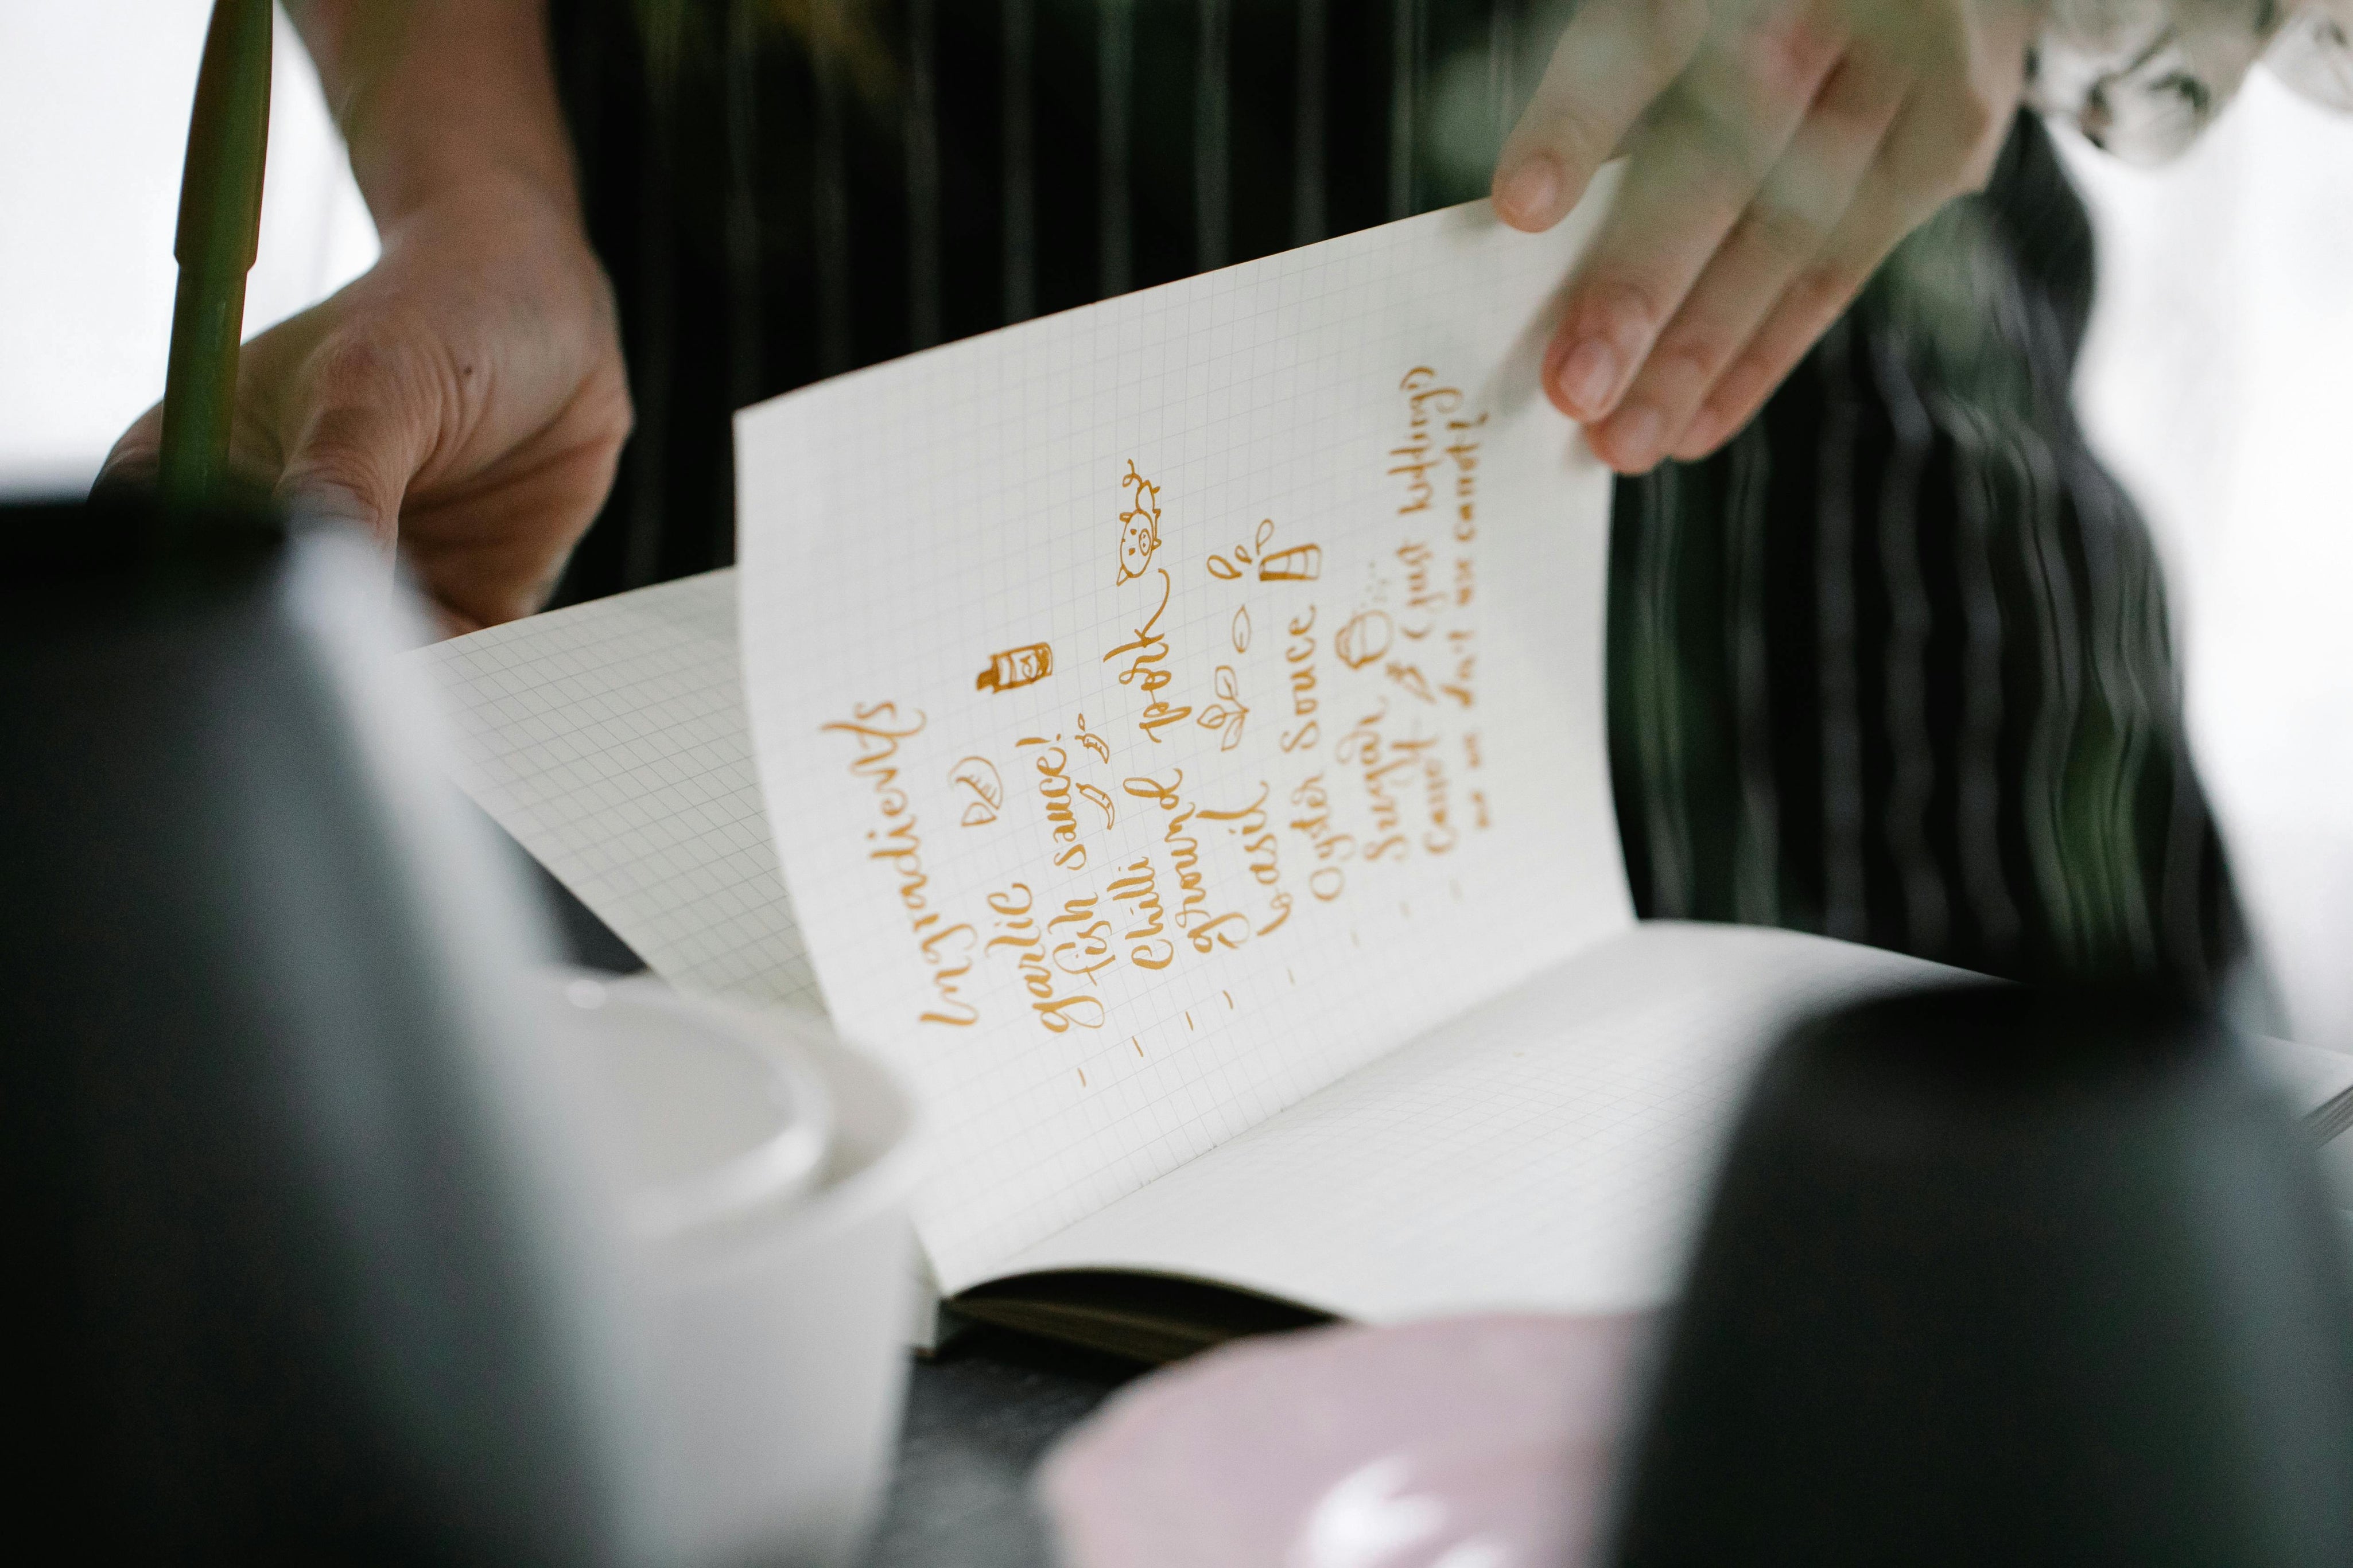 Ingredients
- garlic
- fish sauce!
- chilli
- ground pork
- basil
- Oyster Sauce
- Sugar
- Carrot (just kidding!)
we don't use carrot!